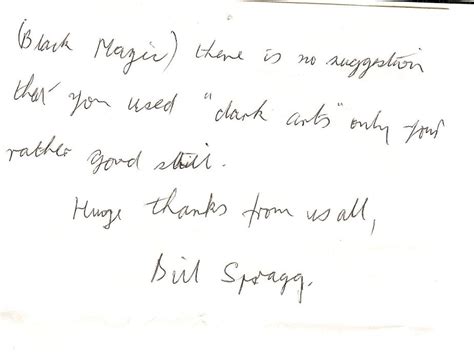 (Black Magic) there is no suggestion
that you used "dark arts" only your
rather good skill.
Huge thanks from us all,
Bill Spragg.